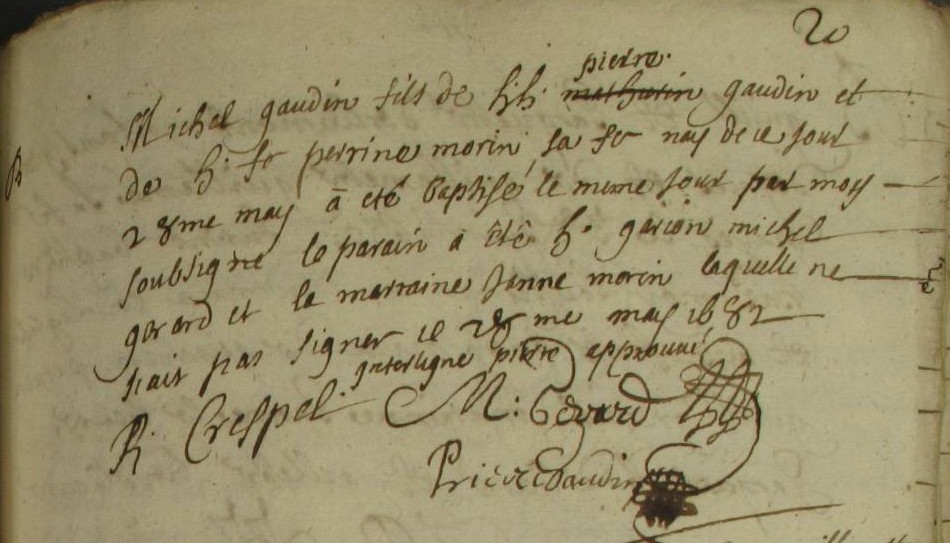 20
pierre
Michel gaudin fils de h.h. mathurin gaudin et
B de h. fe perrine morin sa fe nay de ce jour
28me may a eté baptisé le meme jour par moy
soubsigné le parain a été h. garcon michel
gerard et la marraine Janne morin laquelle ne
sait pas signer ce 28me may 1682
interligne pierre approuvé
R. Crespel M: Gerard
Pierre Gaudin